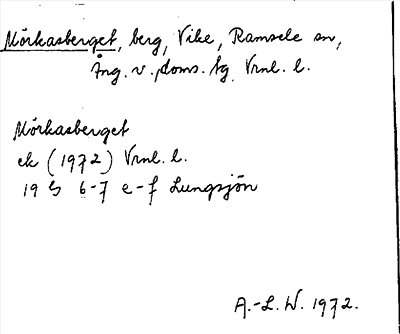 Mörkasberget, berg, Vike, Ramsele sn,
Ång. v. doms. tg. Vrnl. l.
Mörkasberget
ek (1972) Vrnl. l.
19 G 6-7 e-f Lungsjön
A.-L. W. 1972.